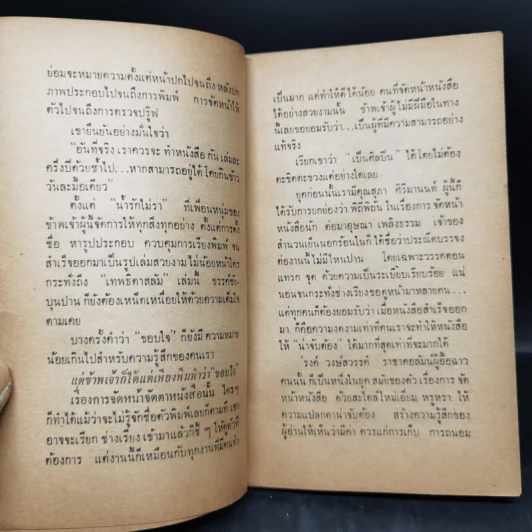 ย่อมจะหมายความตั้งแต่หน้าปกไปจนถึง หลังปก
ภาพประกอบไปจนถึงการพิมพ์ การจัดหน้าให้
ตัวไปจนถึงการตรวจปรู๊ฟ
เขายืนยันอย่างมั่นใจว่า
"อันที่จริง เราควรจะ ทำหนังสือ กัน เล่มละ
ครึ่งปีด้วยซ้ำไป...หากสามารถอยู่ได้ โดยกินข้าว
วันละมื้อเดียว"
ตั้งแต่ "น้ำรักไม่รา" ที่เพื่อนหนุ่มของ
ข้าพเจ้าผู้นี้จัดการให้ทุกสิ่งทุกอย่าง ตั้งแต่การตั้ง
ชื่อ หารูปประกอบ ควบคุมการเรียงพิมพ์ จน
สำเร็จออกมาเป็นรูปเล่มสวยงาม ไม่น้อยหน้าใคร
กระทั่งถึง "เทพธิดาสลัม" เล่มนี้ ขรรค์ชัย-
บุนปาน ก็ยังต้องเหน็ดเหนื่อยให้ด้วยความเต็มใจ
ตามเคย
บางครั้งคำว่า "ขอบใจ" ก็ยังมี ความหมาย
น้อยเกินไปสำหรับความรู้สึกของคนเรา
แต่ข้าพเจ้าก็ได้แต่เพียงพึมพำว่า "ขอบใจ"
เรื่องการจัดหน้าจัดตาหนังสือนั้น ใครๆ
ก็ทำได้แม้ว่าจะไม่รู้จักชื่อตัวพิมพ์เลยก็ตามที เขา
อาจจะเรียก ช่างเรียง เข้ามาแล้วก็ชี้ ๆ ให้ดูตัวที่
ต้องการ แต่งานนี้ก็เหมือนกับทุกงานที่มีคนทำ
เป็นมาก แต่ทำให้ดีได้น้อย คนที่จัดหน้าหนังสือ
ได้อย่างสวยงามนั้น ข้าพเจ้าผู้ไม่มีฝีมือในทาง
นี้เลยขอยอมรับว่า...เป็นผู้ที่มีความสามารถอย่าง
แท้จริง
เรียกเขาว่า "เป็นศิลปิน" ได้โดยไม่ต้อง
ตะขิดตะขวงแต่อย่างใดเลย
ยุคก่อนนั้นเรามีคุณสุภา ศิริมานนท์ ผู้นี้ก็
ได้รับการยกย่องว่า พิถีพิถัน ในเรื่องการ จัดหน้า
หนังสือนัก ต่อมาอุษณา เพลิงธรรม เจ้าของ
สำนวนเย้นยอกร้อนใน ก็ ได้ชื่อว่าประณีตบรรจง
ต่องานนี้ ไม่มีใครปาน โดยเฉพาะวรรคตอน
แทรก จุด ด้วยความเป็นระเบียบเรียบร้อย แน่
นอนจนกระทั่งช่างเรียงขอดูหน้ามาหลายคน...
แต่ทุกคนก็ต้องยอมรับว่า เมื่อหนังสือสำเร็จออก
มา ก็คือความงดงามเท่าที่คนเราจะทำให้หนังสือ
ให้ "น่าจับต้อง" ได้มากที่สุดเท่าที่จะมากได้
'รงค์ วงษ์สวรรค์ ราชาคอลัมน์ผู้อื้อฉาว
คนนั้น ก็เป็นหนึ่งในยุค สมัยของตัว เรื่องการ จัด
หน้าหนังสือ ด้วยสะไตล์ใหม่เอี่ยม หรูหรา ให้
ความแปลกตาน่าจับต้อง สร้างความรู้สึกของ
ผู้อ่านให้เห็นว่ามีค่า ควรแก่การเก็บ การถนอม